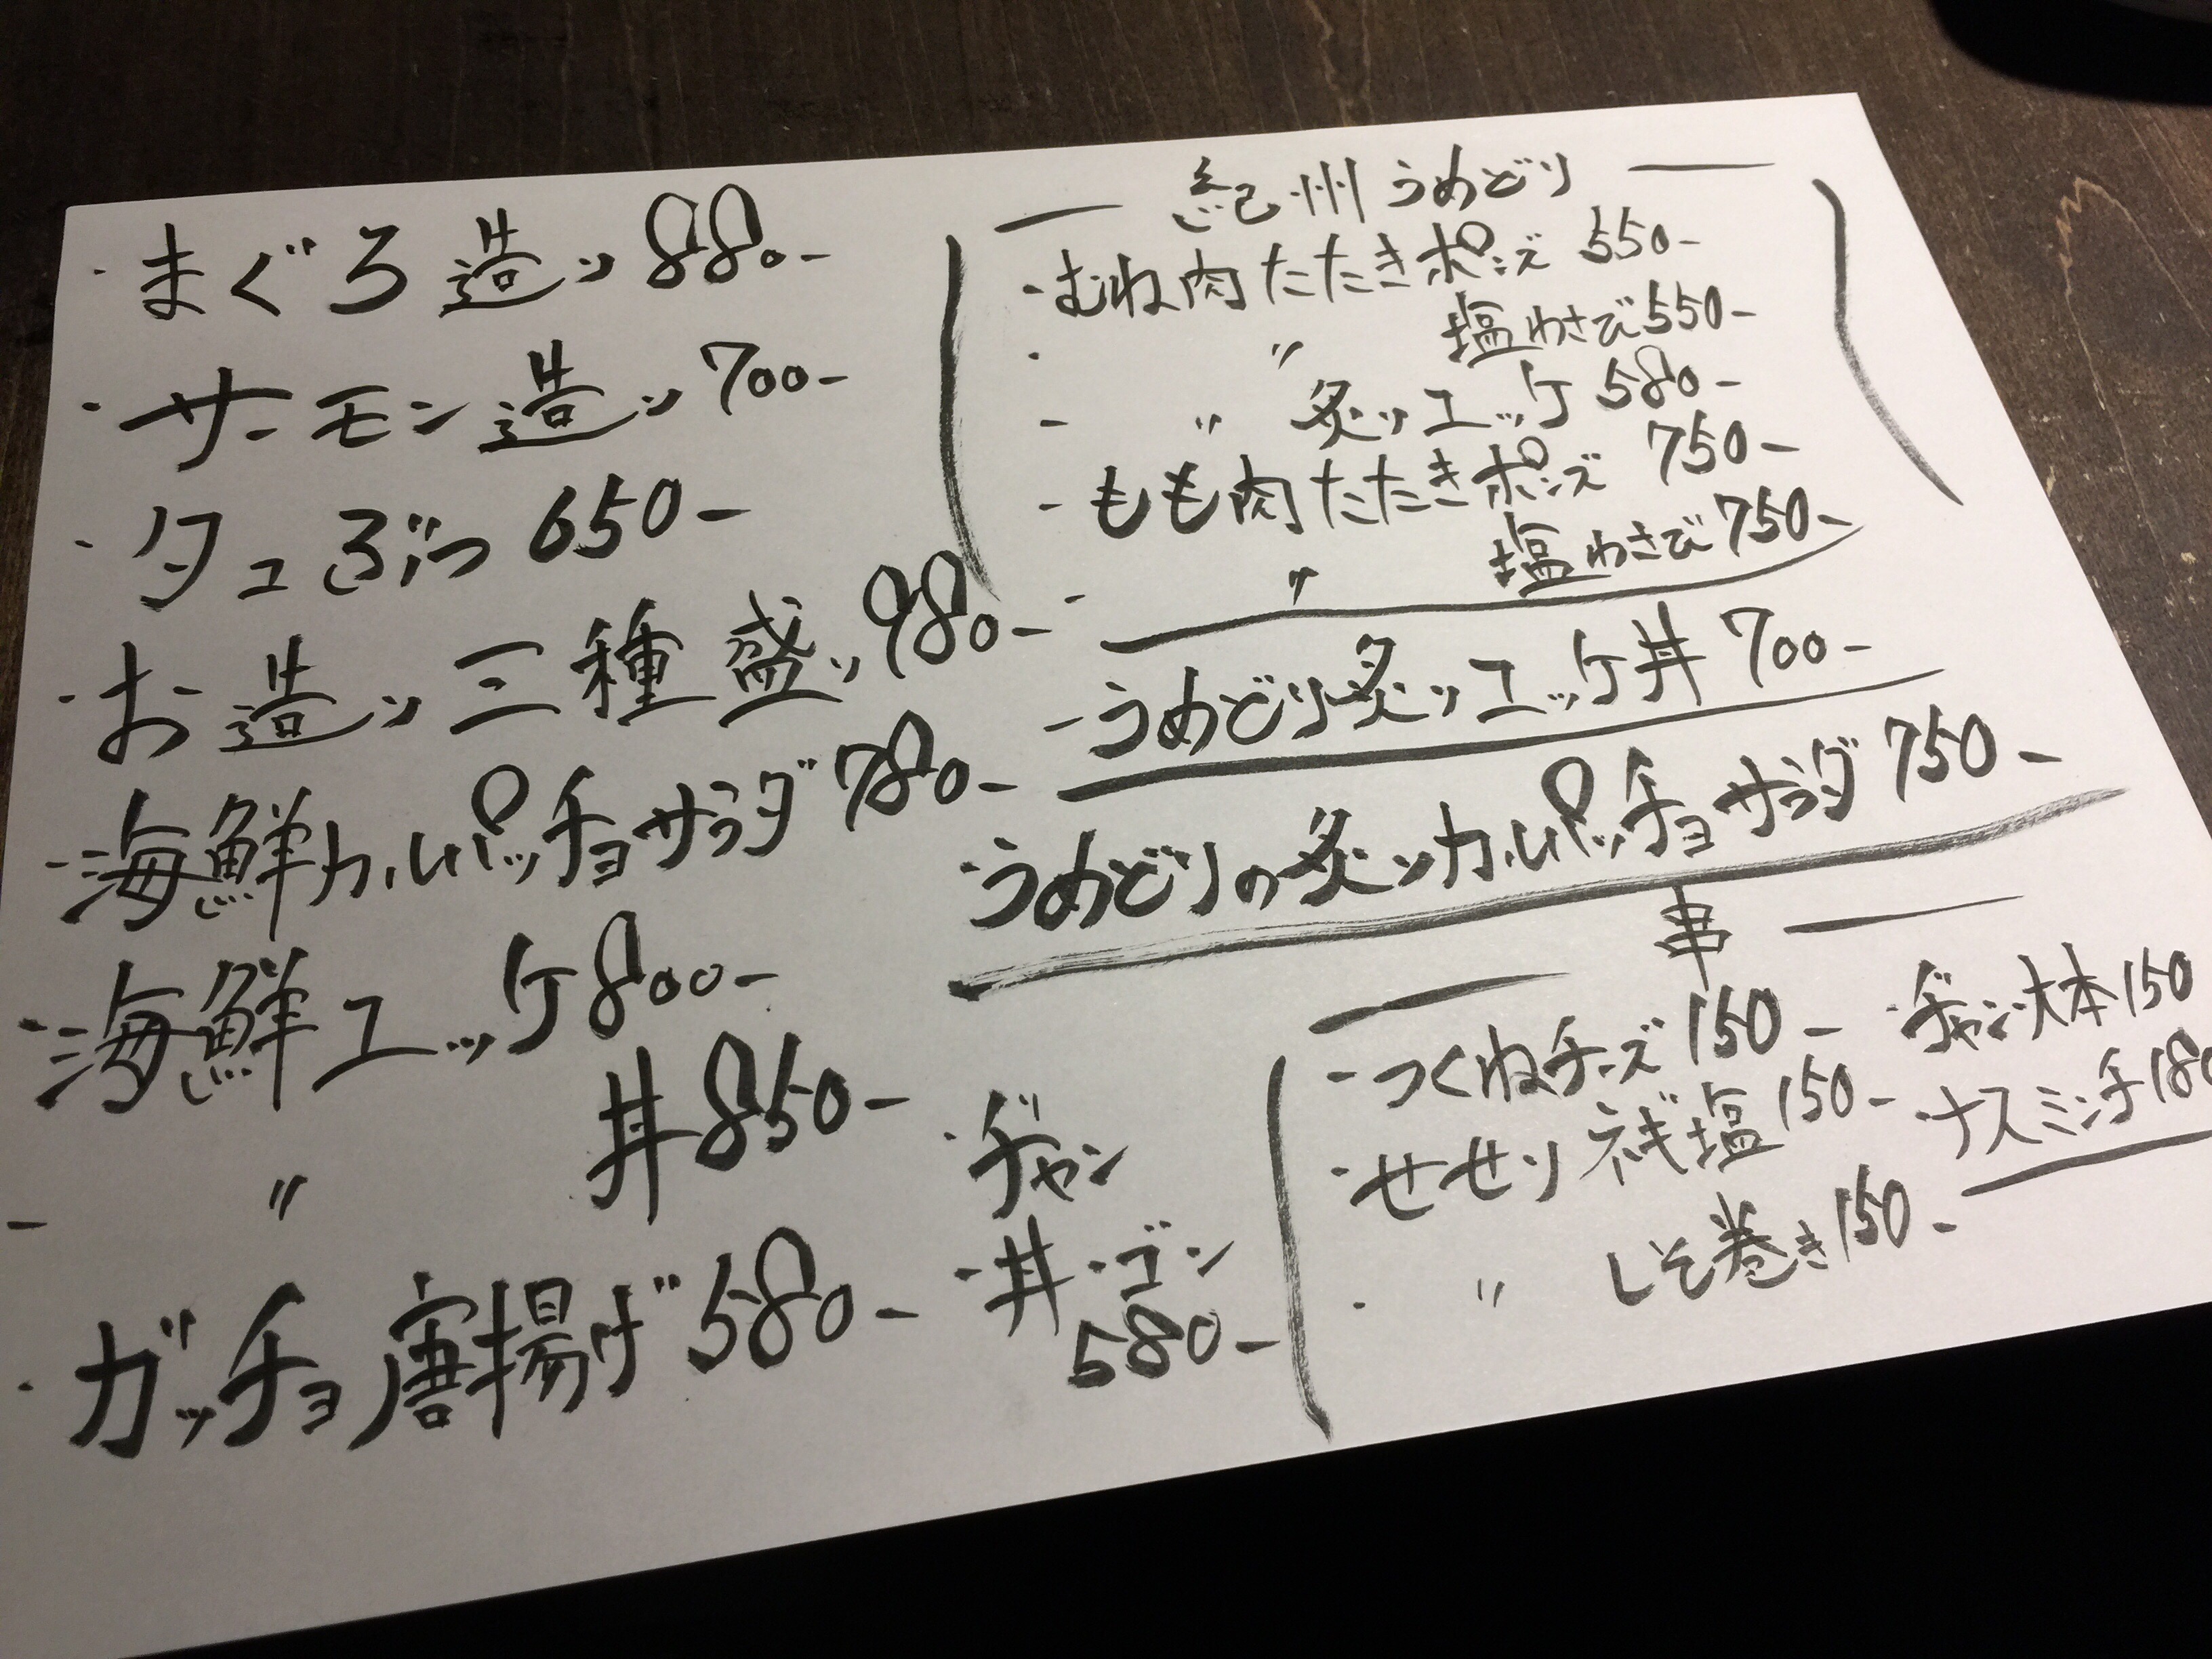 ・まぐろ造り 880-
・サーモン造り 700-
・タコぶつ 650-
・お造り三種盛り 980-
・海鮮カルパッチョサラダ 780-
・海鮮ユッケ 800-
・ 〃 丼 850-
・ガッチョ唐揚げ 580-
・チャン
・丼・ゴン
580-
紀州うめどり
・むね肉たたきポンズ 550-
・ 〃 塩わさび 550-
・ 〃 炙りユッケ 580-
・もも肉たたきポンズ 750-
・ 〃 塩わさび 750-
・うめどり炙りユッケ丼 700-
・うめどりの炙りカルパッチョサラダ 750-
串
・つくねチーズ 150-
・せせりネギ塩 150-
・ 〃 しそ巻き 150-
・チャン 150
・ナスミンチ 180